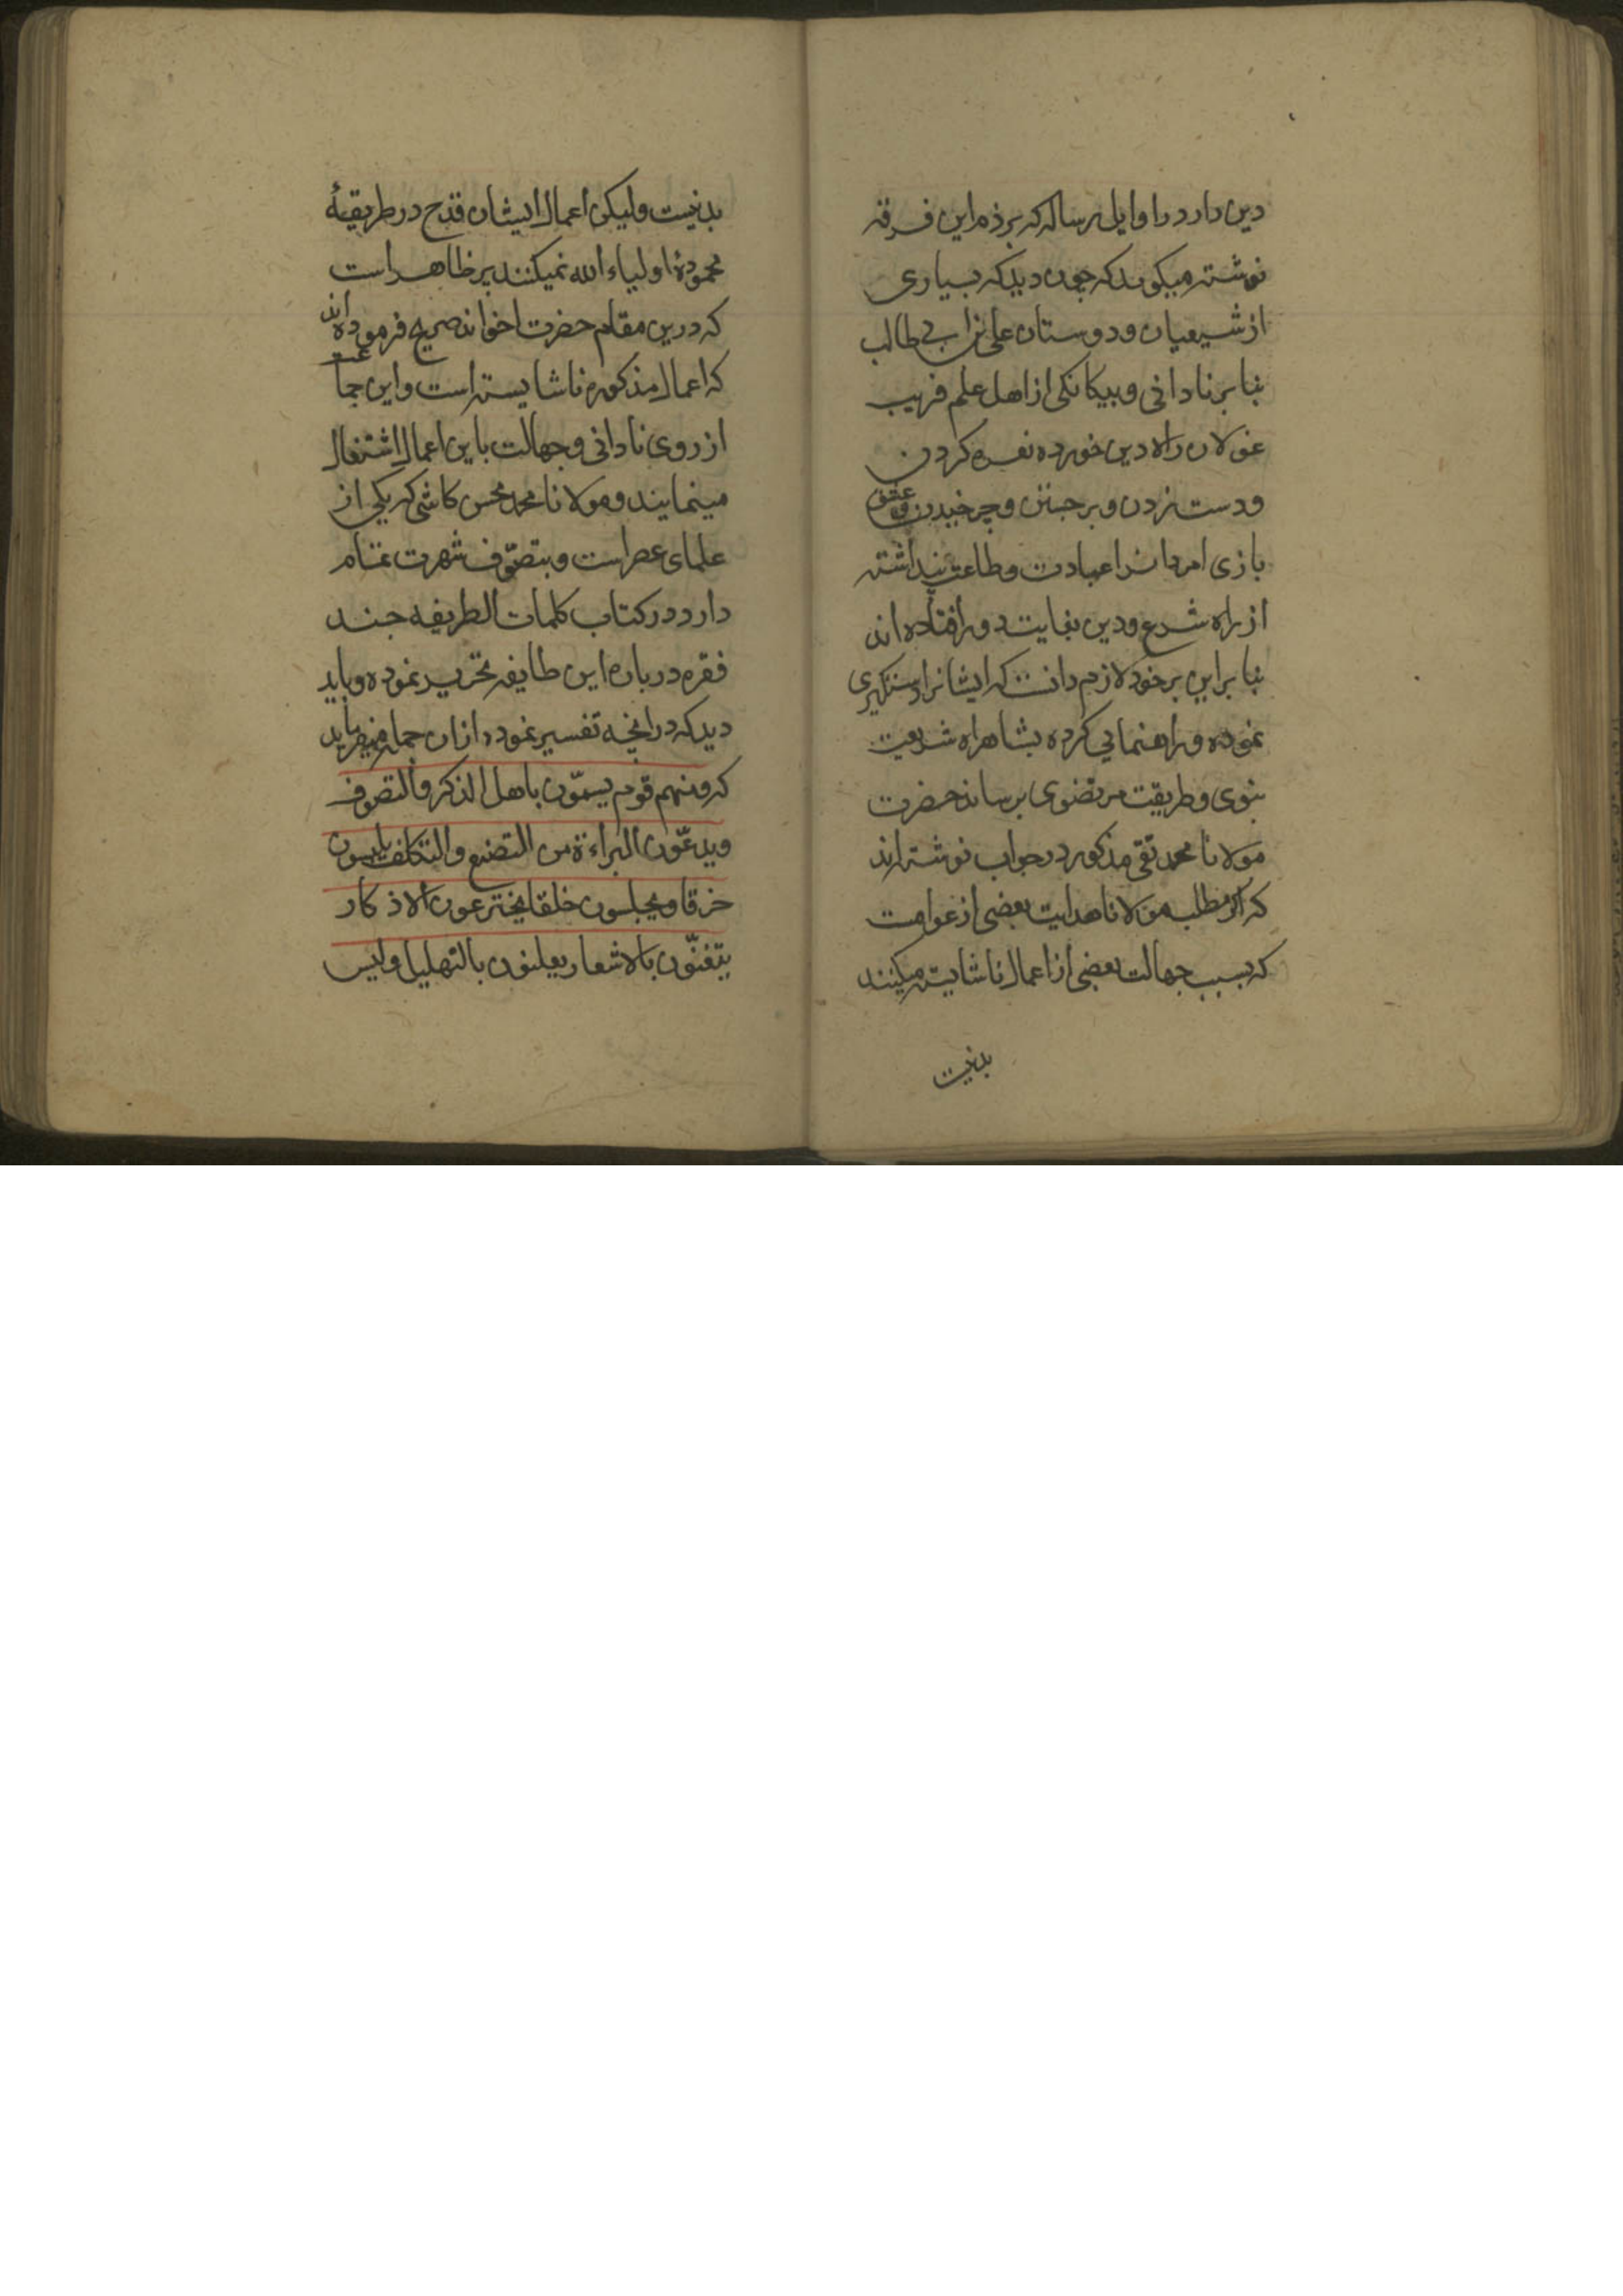 دین دارد در اوایل رساله که بر ذم این فرقه
نوشته میکوید که چون دید که بسیاری
از شیعیان و دوستان علی بن ابی طالب
بنا بر نادانی و بیکانکی از اهل علم فریب
غولان راه دین خورده نعره کردن
و دست زدن و بر جستن و چرخیدن و عشق
بازی امردان را عبادت و طاعت پنداشته
از راه شرع و دین بغایت دور افتاده اند
بنا براین بر خود لازم دانست که ایشانرا دستکیری
نموده و راهنمایی کرده بشاهراه شریعت
نبوی و طریقت مرتضوی برساند حضرت
مولانا محمد تقی مذکور در جواب نوشته اند
که اکر مطلب مولانا هدایت بعضی از عوامست
که بسبب جهالت بعضی از اعمال ناشایسته میکنند
بد نیست
بد نیست ولیکن اعمال ایشان قدح در طریقهٔ
محمودهٔ اولیاء الله نمیکنند بر ظاهر است
که درین مقام حضرت اخواند صحیح فرموده اند
که اعمال مذکوره ناشایسته است و این جماعت
از روی نادانی و جهالت باین اعمال اشتغال
مینمایند و مولانا محمد محسن کاشی که یکی از
علمای عصر است و بتصوّف شهرت تمام
دارد در کتاب کلمات الطریفه چند
فقره در باره این طایفه تحریر نموده و باید
دید که در انچه تفسیر نموده ازان جمله میفرماید
که ومنهم قوم یسمّون باهل الذکر والتصوف
ویدعّون البراءة من التصنع والتکلف یلبسون
خرقا ویجلسون حلقا یخترعون الاذکار
یتغنّون بالاشعار یعلنون بالتهلیل ولیس